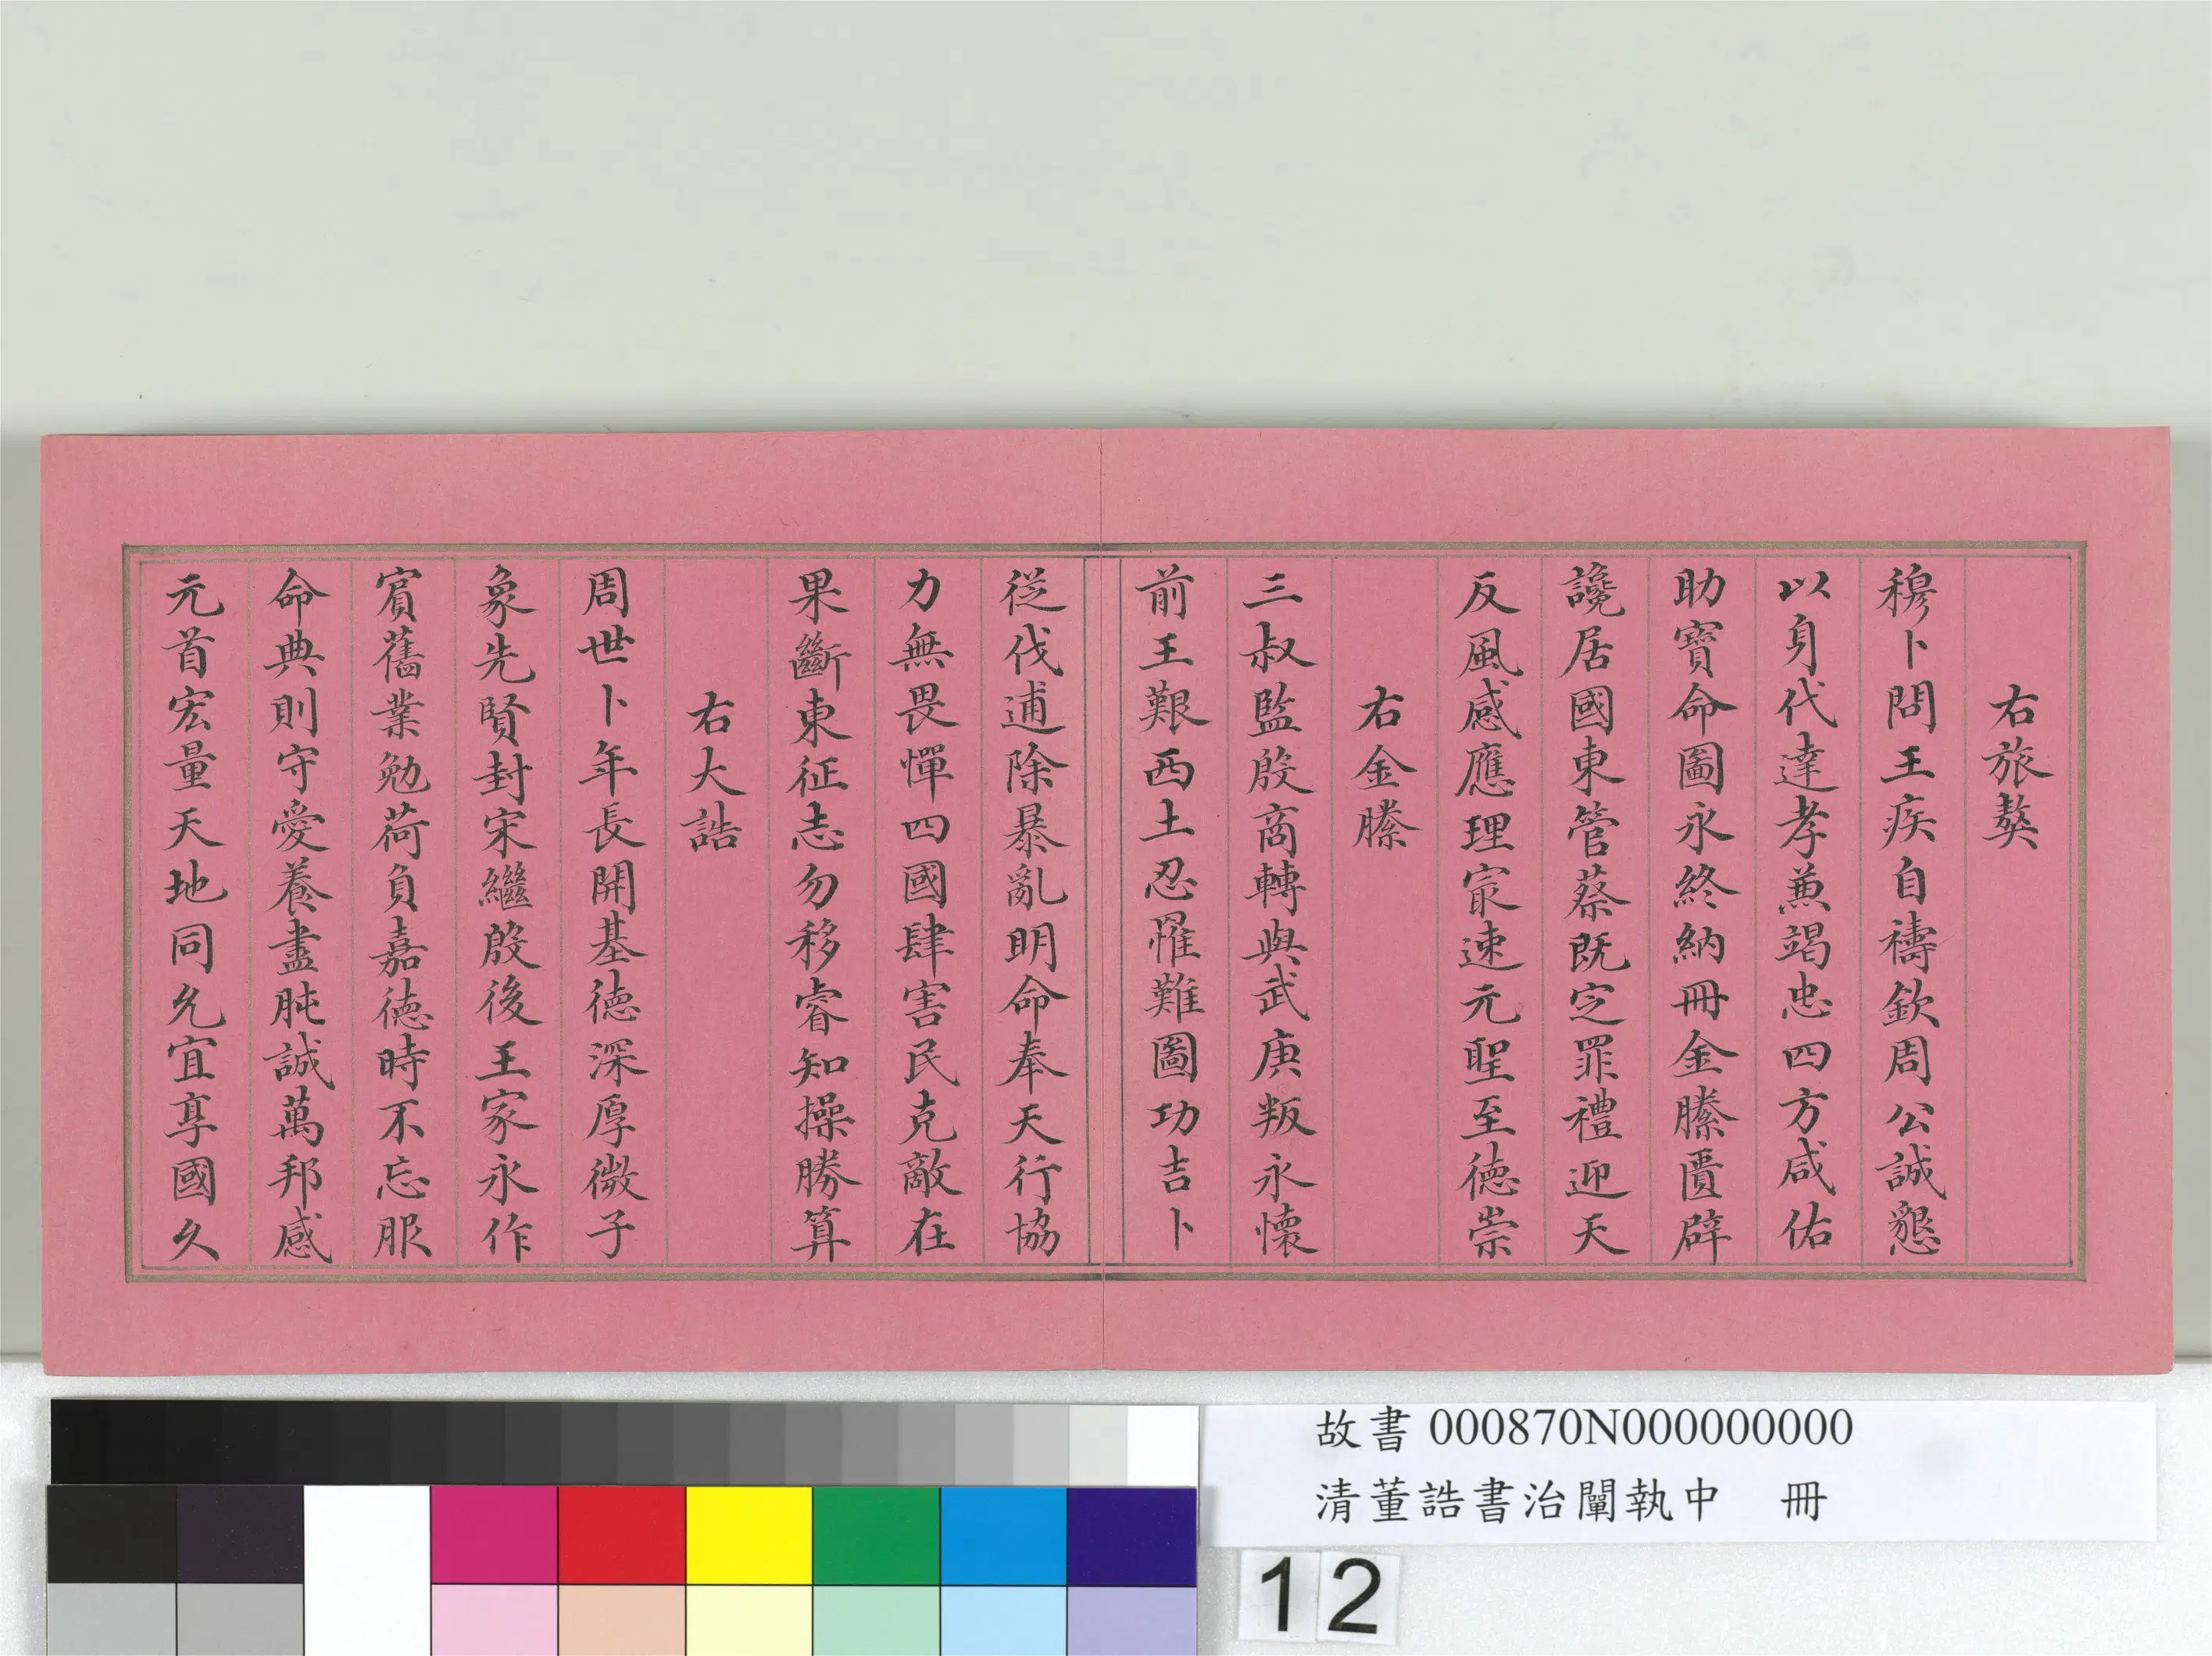 右旅獒
穆卜問王疾自禱欽周公誠懇
以身代達孝兼竭忠四方咸佑
助寶命圖永終納冊金縢匱辟
讒居國東管蔡既定罪禮迎天
反風感應理㝡速元聖至德崇
右金縢
三叔監殷商轉與武庚叛永懷
前王艱西土忍罹難圖功吉卜
從伐逋除暴亂明命奉天行協
力無畏憚四國肆害民克敵在
果斷東征志勿移睿知操勝算
右大誥
周世卜年長開基德深厚微子
象先賢封宋繼殷後王家永作
賓舊業勉荷負嘉德時不忘服
命典則守愛養盡肫誠萬邦感
元首宏量天地同允宜享國久
故書 000870N000000000
清董誥書治闡執中 冊
12